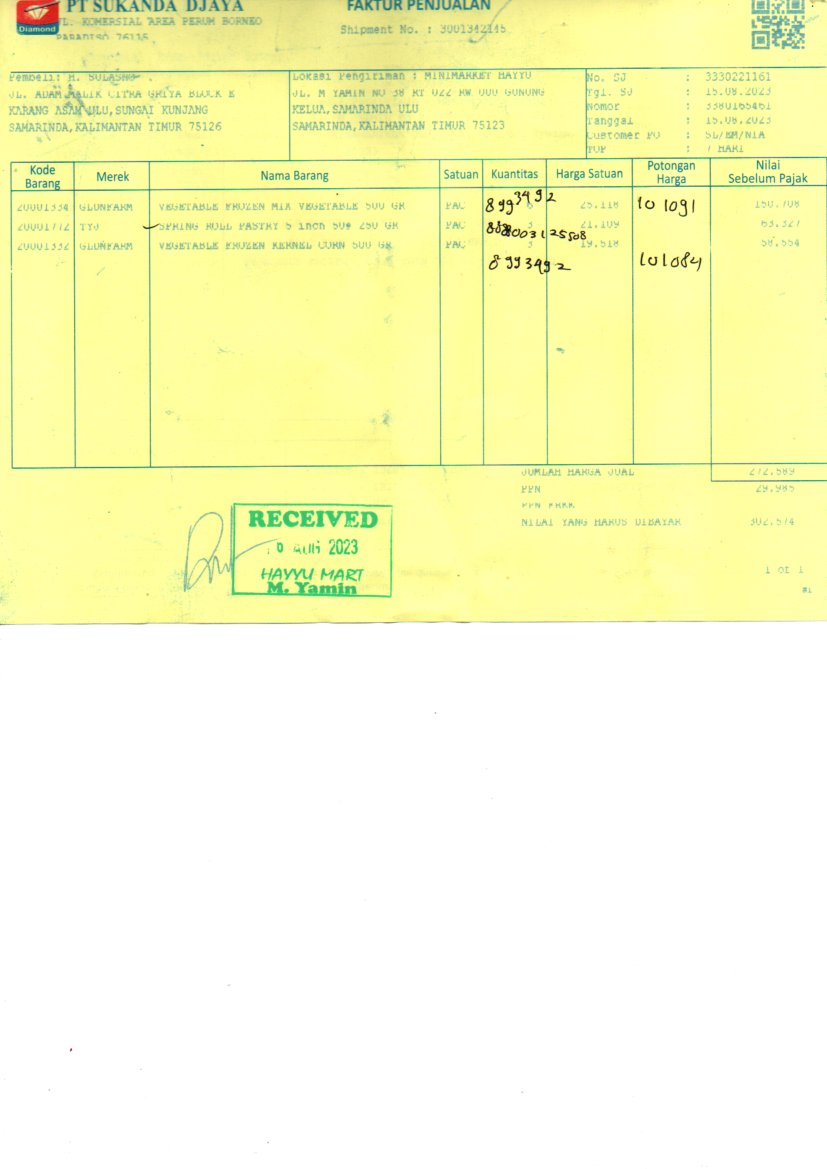 PT SUKANDA DJAYA
JL. KOMERSIAL AREA PERUM BORNEO
PARADISO 76115
Diamond
FAKTUR PENJUALAN
Shipment No. : 3001342145
Pembeli: H. SULASNO
JL. ADAM MALIK CITRA GRIYA BLOCK E
KARANG ASAM ULU,SUNGAI KUNJANG
SAMARINDA,KALIMANTAN TIMUR 75126
Lokasi Pengiriman : MINIMARKET HAYYU
JL. M YAMIN NO 38 RT 022 RW 000 GUNUNG
KELUA,SAMARINDA ULU
SAMARINDA,KALIMANTAN TIMUR 75123
No. SJ : 3330221161
Tgl. SJ : 15.08.2023
Nomor : 3380165461
Tanggal : 15.08.2023
Customer PO : SL/EM/NIA
TOP : 7 HARI
Kode Barang Merek Nama Barang Satuan Kuantitas Harga Satuan Potongan Harga Nilai Sebelum Pajak
20001334 GLDNFARM VEGETABLE FROZEN MIX VEGETABLE 500 GR PAC 8993492 6 25.118 101091 150.708
20001772 TYJ SPRING ROLL PASTRY 5 inch 50# 250 GR PAC 3 21.109 63.327
20001332 GLDNFARM VEGETABLE FROZEN KERNEL CORN 500 GR PAC 3 19.518 58.554
8993492 101084
JUMLAH HARGA JUAL 272.589
PPN 29.985
PPN
NILAI YANG HARUS DIBAYAR 302.574
RECEIVED
2023
HAYYU MART
M. Yamin
1 OF 1
#1